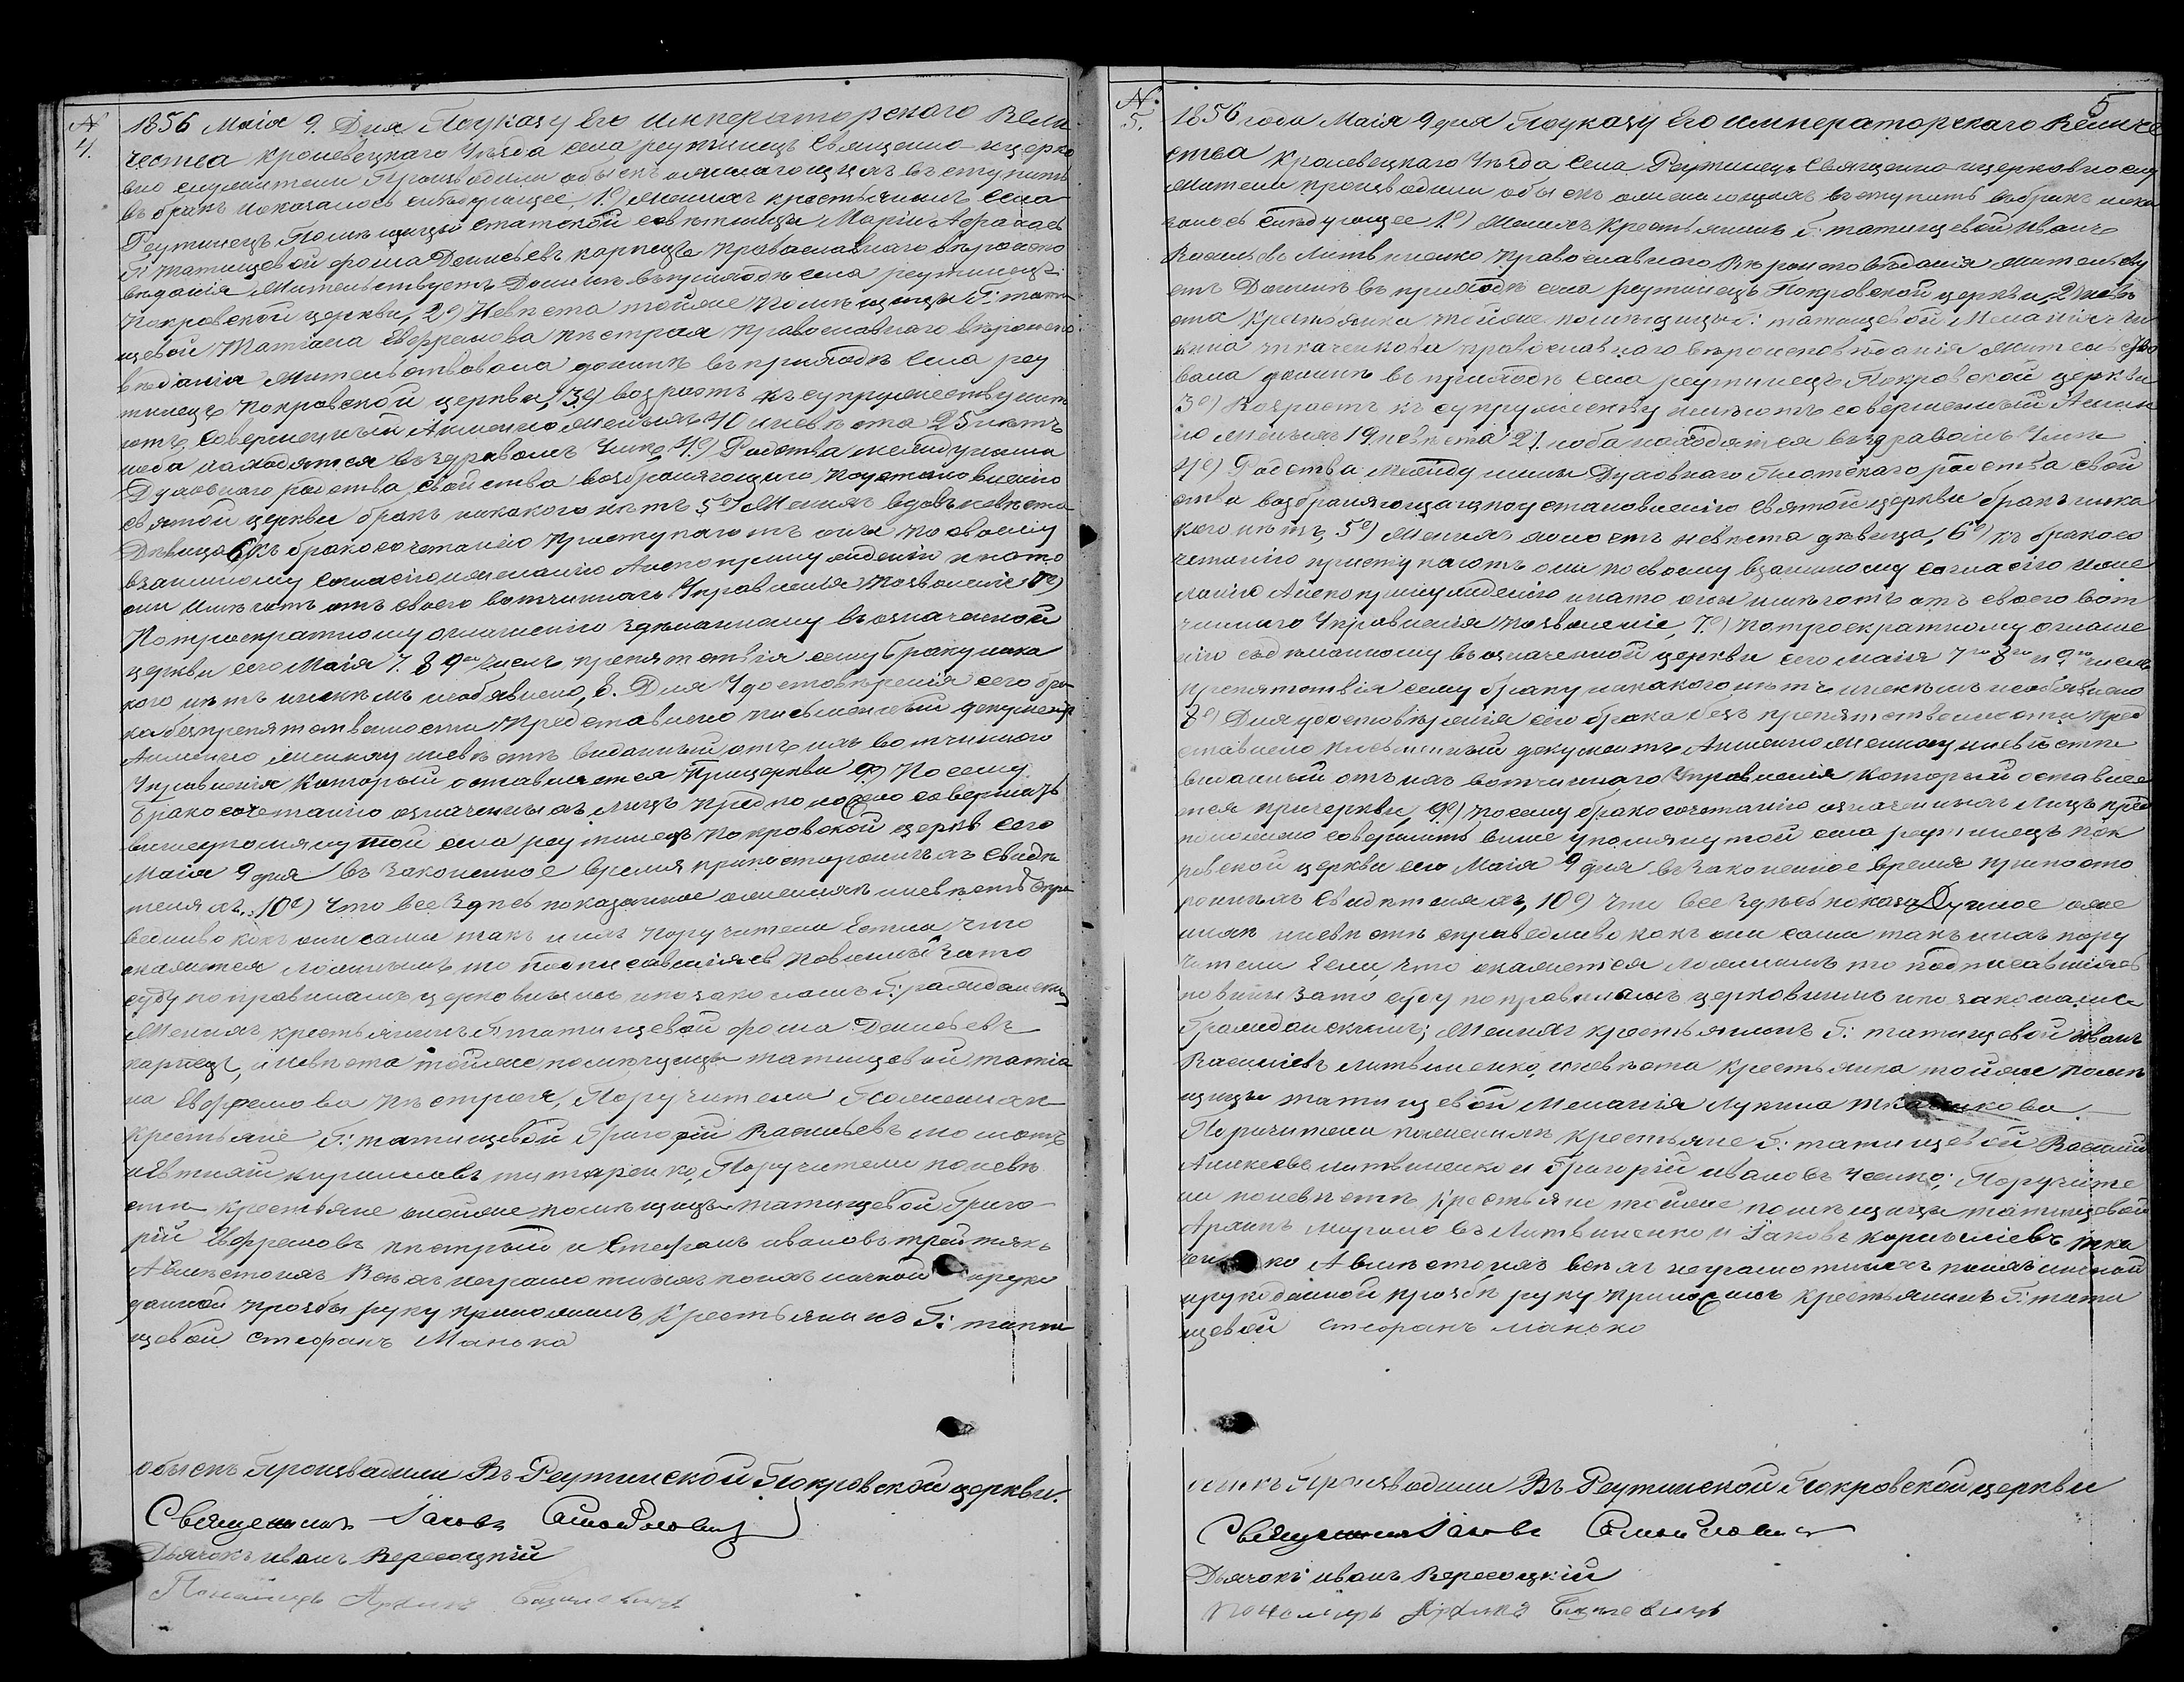 № 4.
1856 Маія 9. Дня Поуказу Его императорскаго Вели
чества кролевецкаго Уѣзда села реутинецъ Священно ицерко
вно служители Производили обыскъ ожелающихъ вступить
въ бракъ ипоказалось слѣдующее, 1е) Женихъ крестьянинъ села
Реутинецъ Помѣщицы статской совѣтницы Маріи Афанась
Г: татищевой фома Денисьевъ карпецъ православнаго вѣроиспо
вѣданія Жительствуетъ Донынѣ въприходѣ села реутинецъ
покровской церкви, 2е) Невѣста тойже помѣщицы Г: тати
щевой Татіана Евфремова пѣстрая православнаго вѣроиспо
вѣданія Жительствовала донынѣ въприходѣ села реу
тинецъ покровской церкви, 3е) возрастъ къ супружеству имѣ
ютъ, совершенный Аименно женихъ 40 иневѣста 25 лѣтъ
иоба находятся въздравомъ Умѣ, 4е) Родства между ними
Духовнаго родства, свойства возбраняющаго поустановленію
святой церкви бракъ никакого нѣтъ 5е) Женихъ вдовъ невѣста
Дѣвица 6) къ бракосочетанію приступаютъ они посвоему
взаимному согласію ижеланію Анепопринужденію инато
они имѣютъ отъ своего вотчиннаго Управленія Позволеніе 7е)
Потроекратному оглашенію здѣланному въозначенной
церкви сего Маія 7. 8 9го числъ препятствія сему браку ника
кого нѣтъ иникѣмъ необявлено, 8. Для Удостовѣренія сего бра
ка безпрепятственности представлено письменный документъ
Аименно жениху иневѣстѣ виданный отъ ихъ вотчинного
Управленія который оставляется Прицеркви 9е) Посему
бракосочетанію означенныхъ лицъ предположено совершить
вишеупомянутой села реутинецъ покровской церкв сего
Маія 9 дня въ законенное время припостороннихъ свидѣ
теляхъ. 10е) Что все здѣсь показанное ожених иневѣстѣ спра
ведливо какъ они сами такъ иихъ поручители Естли что
окажется ложнымъ то подписавшіяся повинны зато
суду поправиламъ церковнымъ ипозаконамъ Г: ражданскимъ
Женихъ крестьянинъ Г: татищевой фома Денисьевъ
карпецъ, иневѣста тойже помѣщицы татищевой татіа
на Евфремова пѣстрая, Поручители Поженихѣ
крестьяне Г: татищевой Григорій Васильевъ молотъ
иЕвтихій кириловъ титаренко, Поручители поневѣ
стѣ крестьяне тойже помѣщицы татищевой Григо
рій Евфремовъ пѣстрый и Стефанъ ивановъ третякъ
Авмѣсто ихъ всѣхъ неграмотныхъ поихъ личной ируко
данной прозбы руку приложилъ Крестьянинъ Г: тати
щевой стефанъ Манько
обыскъ Производили Въ Реутинской Покровской церкви.
Священникъ Іаковъ Самойловичъ
Дьячокъ иванъ Вересоцкій
Пономарь Архипъ
5
№. 5.
1856 года Маія 9 дня Поуказу Его императорскаго Величе
ства Кролевецкаго Уѣзда села Реутинецъ Священно ицерковнослу
жители производили обыскъ ожелающихъ вступить въбракъ ипока
залось слѣдующее 1е) Женихъ Крестьянинъ Г: татищевой Иванъ
Васильевъ литвиненко православнаго Вѣроисповѣданія жительству
етъ Донынѣ въ приходѣ села реутинецъ Покровской церкви, 2е) невѣ
ста крестьянка тойже помѣщицы Г: татищевой Меланія Лу
кина ткаченкова православнаго вѣроисповѣданія жительство
вала донынѣ въ приходѣ села реутинецъ Покровской церкви
3е) Возрастъ къ супружеству имѣютъ совершенный Аимен
но женихъ 19 невѣста 21. иоба находятся въздравомъ Умѣ
4е) Родства между ними Духовнаго Плотскаго родства свой
ства возбраняющаго поустановленію святой церкви бракъ ника
кого нѣтъ, 5е) Женихъ холостъ невѣста дѣвица, 6е) къ бракосо
четанію приступаютъ они посвоему взаимному согласію иже
ланію Анепопринужденію инато они имѣютъ отъ своего вот
чиннаго Управленія позволеніе, 7е) потроекратному оглаше
нію сьдѣланному въозначенной церкви сего маія 7го 8го и 9го числъ
препятствія сему браку никакого нѣтъ иникѣмъ необявлено
8е) Дляудостовѣренія сего брака безъ препятственности пред
ставлено письменный документъ Аименно жениху иневѣстѣ
виданный отъихъ вотчиннаго Управленія который оставляе
тся прицеркви, 9е) посему бракосочетанію означенныхъ Лицъ пред
положено совершить вишеупомянутой села реутинецъ пок
ровской церкви сего Маія 9 дня въ законенное время припосто
роннихъ свидѣтеляхъ, 10е) Что все здѣсь показанное оже
нихѣ иневѣстѣ справедливо какъ они сами такъ иихъ пору
чители Если что окажется ложнымъ то подписавшіясь
повинны зато суду поправиламъ церковнымъ ипозаконамъ
Гражданскимъ; Женихъ крестьянинъ Г: татищевой иванъ
Василіевъ литвиненко, иневѣста крестьянка тойже помѣ
щицы татищевой Меланія Лукина ткаченкова.
Поручители поженихѣ крестьяне Г: татищевой Василій
Алексѣевъ литвиненко и Григорій ивановъ Усенко; Поручите
ли поневѣстѣ крестьяне тойже помѣщицы татищевой
Архипъ литвиненко и Іаковъ корніліевъ тка
ченко Авмѣсто ихъ всѣхъ неграмотныхъ поихъ личной
ирукоданной прозбѣ руку приложилъ крестьянинъ Г: тати
щевой стефанъ манько
обыскъ Производили Въ Реутинской Покровской церкви
Священникъ Іаковъ Самойловичъ
Дьячокъ иванъ Вересоцкій
пономарь Архипъ